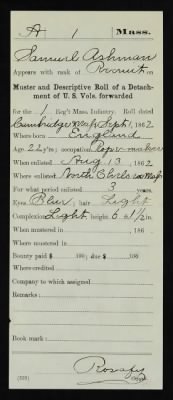 A 1 Mass.
Samuel Ashman
Appears with rank of Recruit on
Muster and Descriptive Roll of a Detach-
ment of U. S. Vols. forwarded
for the 1 Reg't Mass. Infantry. Roll dated
Cambridge Mass Sept 1, 1862
Where born England
Age 22 y'rs; occupation Paper maker
When enlisted Aug 13, 1862
Where enlisted North Chelmsford Mass
For what period enlisted 3 years.
Eyes Blue; hair Light
Complexion Light; height 5 ft. 1/2 in.
When mustered in , 186
Where mustered in
Bounty paid $ 100; due $ 100
Where credited
Company to which assigned
Remarks:
Book mark:
(339) Copyist.